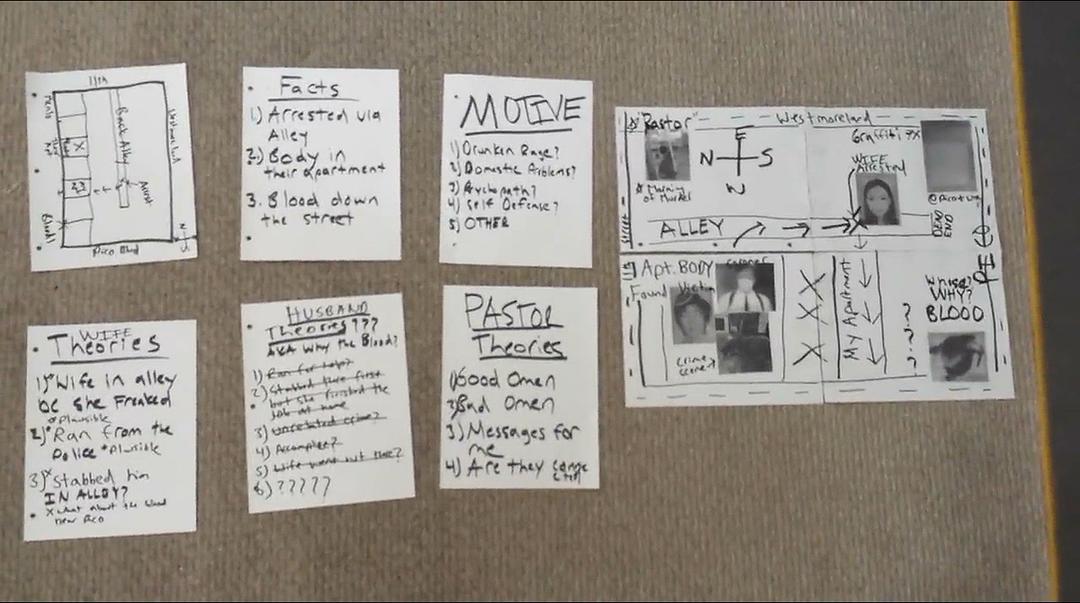 11th
Back Alley
Arrest
Pico Blvd
Facts
1) Arrested via
Alley
2.) Body in
their apartment
3. Blood down
the street
MOTIVE
1) Drunken Rage?
2) Domestic Problems?
3) Psychopath?
4) Self Defense?
5) OTHER
WIFE
Theories
1) Wife in alley
bc she Freaked
Plausible
2) Ran from the
Police *Plausible
3) Stabbed him
IN ALLEY?
x what about the blood
near Pico
HUSBAND
Theories???
AKA Why the Blood?
1) Ran for help?
2) Stabbed there first
but she finished the
job at home
3) Unrelated crime?
4) Accomplice?
5) Wife went out there?
6) ?????
PASTOR
Theories
1) Good Omen
2) Bad Omen
3) Messages for
me
4) Are they
"Pastor"
Westmoreland
Graffiti
E
N S
WIFE
Arrested
Morning
of Murder
ALLEY
DEAD
END
PICO
Apt. BODY
Found
Victim
Coroner
crime
scene
XX
XX
X
My Apartment
WHY?
BLOOD
? ? ? ?